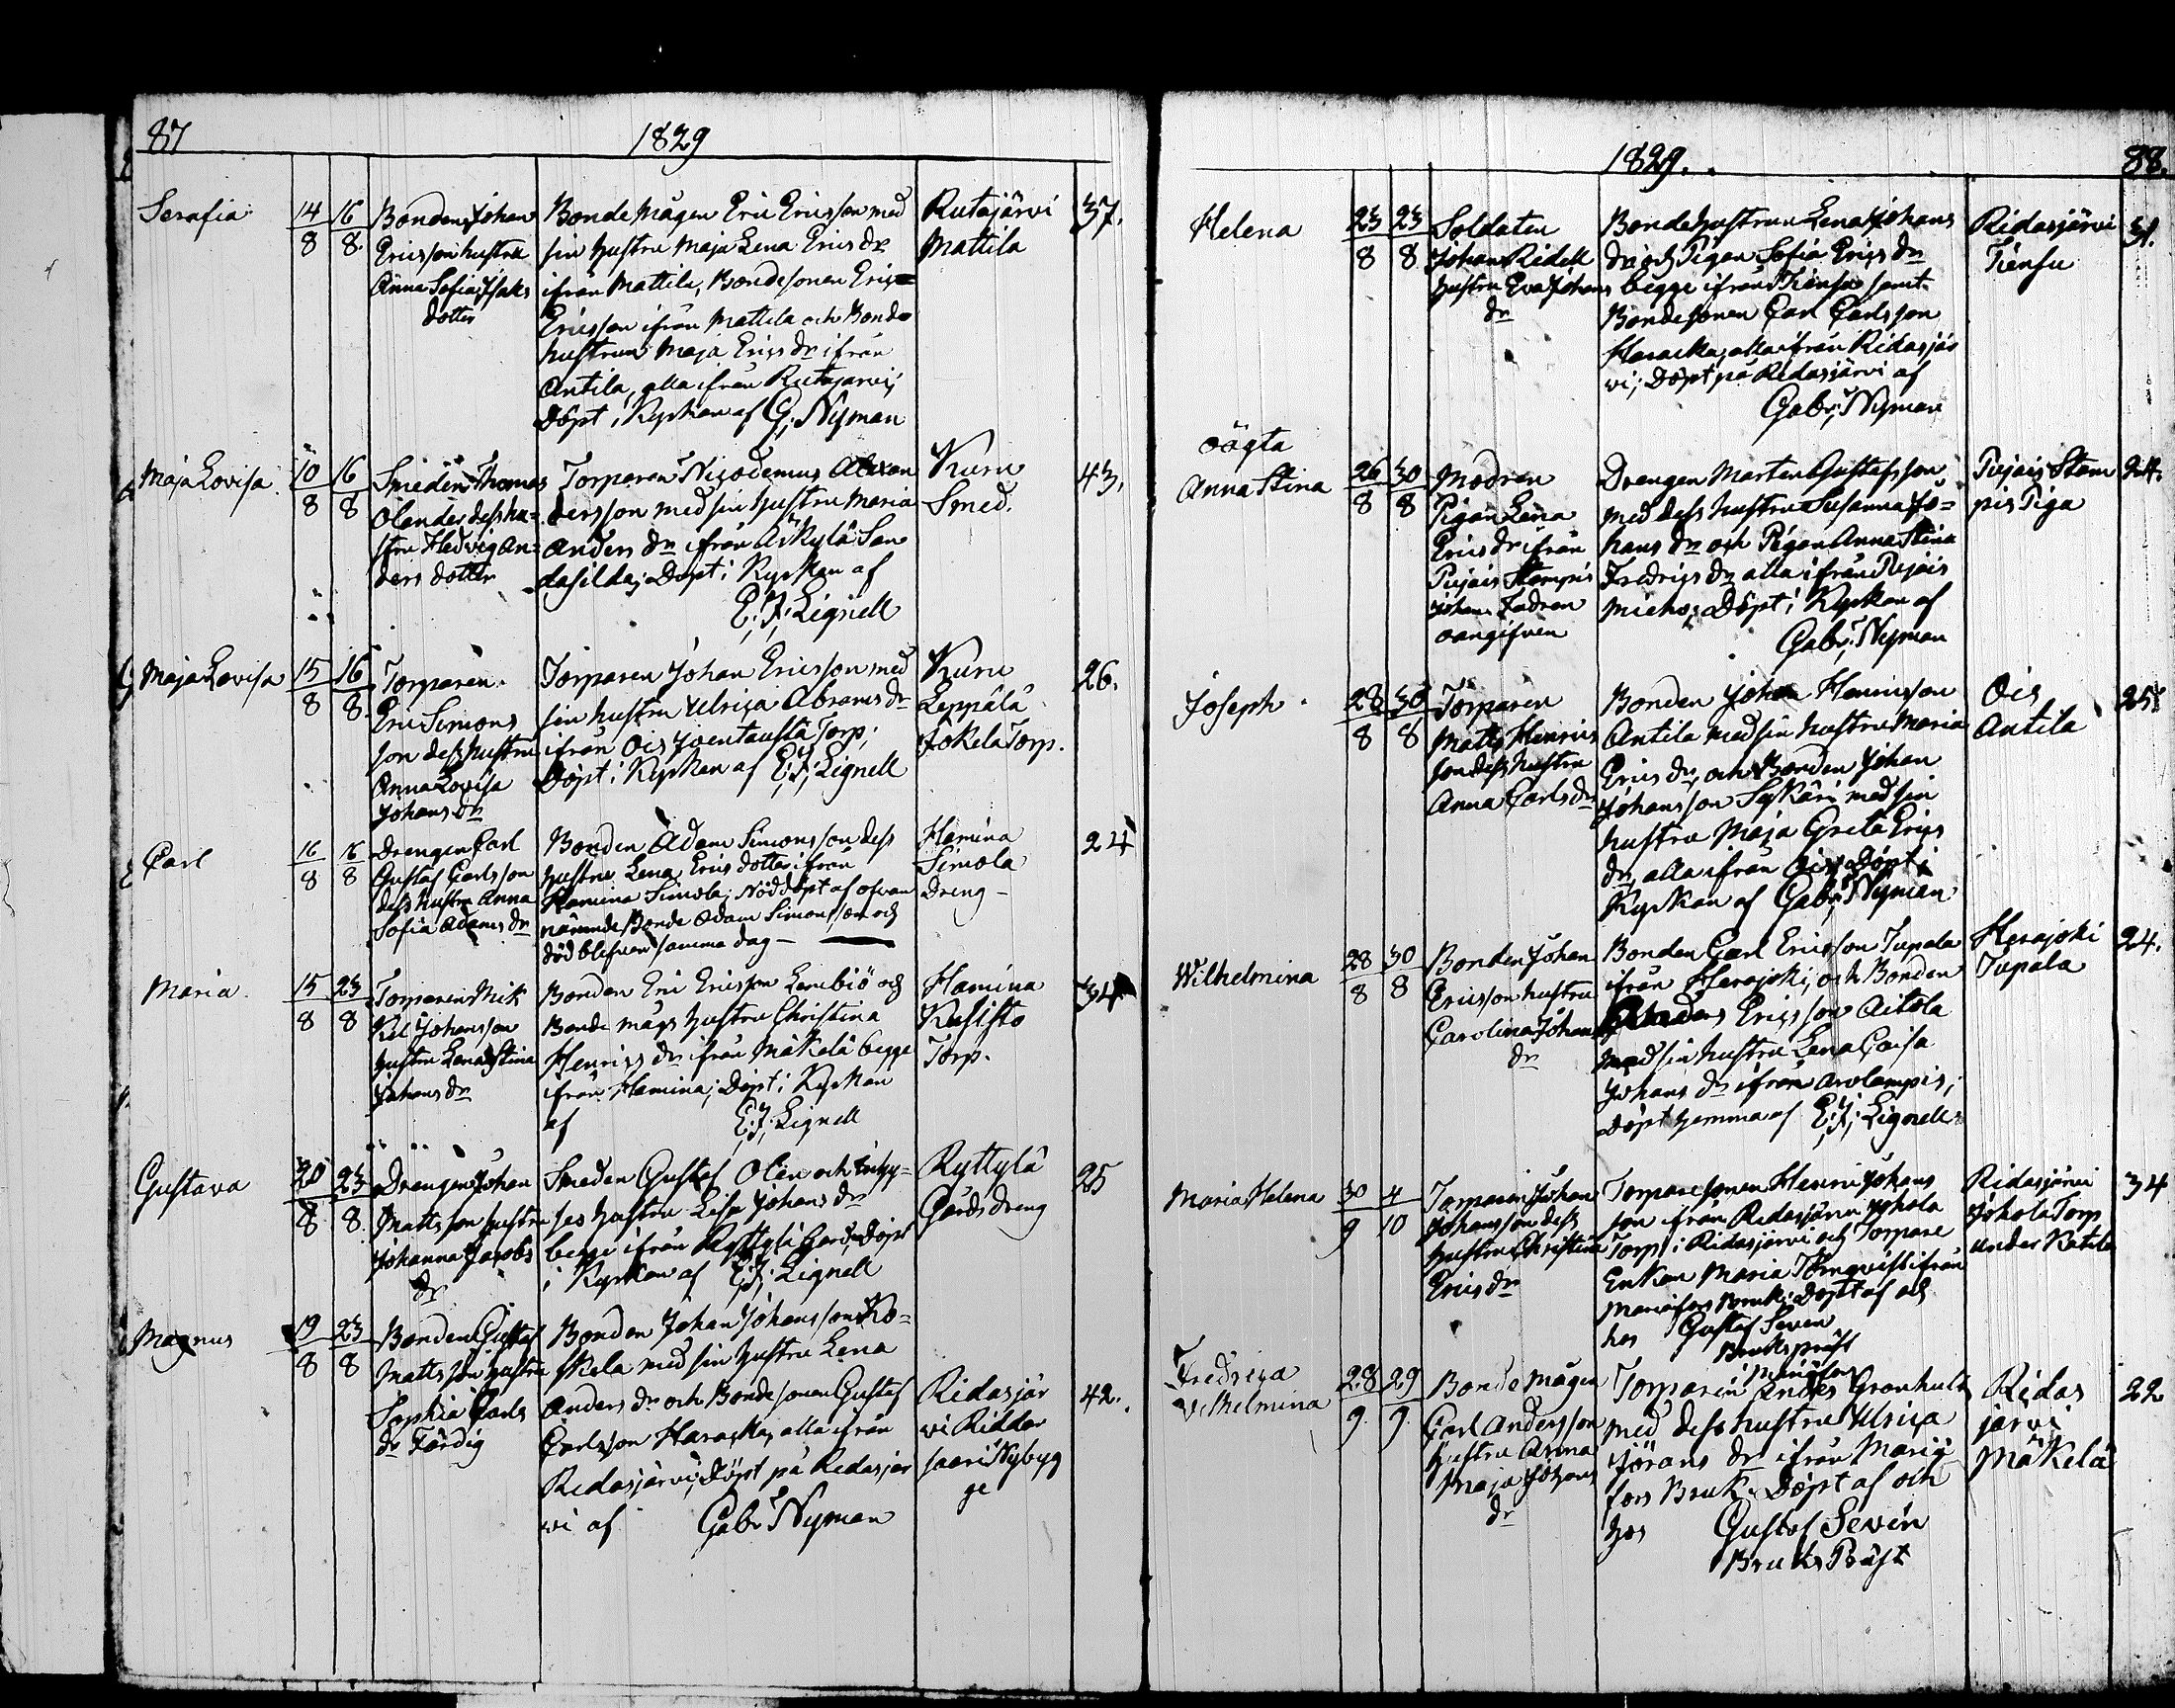 87
1829
Serafia
14/8
16/8
Bonden Johan
Ericsson hustru
Anna Sofia Isaks
dotter
Bonde mågen Eric Ericsson med
sin hustru Maja Lena Erics dr
ifrån Mattila, Bondesonen Eric
Ericsson ifrån Mattila och Bonde
hustrun Maja Erics dr ifrån
Antila, alla ifrån Rutajärvi;
Döpt i Kyrkan af G; Nyman
Rutajärvi
Mattila
37.
Maja Lovisa
10/8
16/8
Smeden Thomas
Olander dess hu=
stru Hedvig An=
ders dotter
Torparen Nicodemus Alexan
dersson med sin hustru Maria
Anders dr ifrån Äikylä San
dasilda; Döpt i Kyrkan af
E; J; Lignell
Kuru
Smed.
43.
Maja Lovisa
15/8
16/8.
Torparen
Eric Simons
son dess hustru
Anna Lovisa
Johans dr
Torparen Johan Ericsson med
sin hustru Ulrica Abrams dr
ifrån Ois Joentausta Torp;
Döpt i Kyrkan af E; J; Lignell
Kuru
Leppälä
Jokela Torp.
26.
Carl
16/8
16/8
Drengen Carl
Gustaf Carlsson
dess hustru Anna
Sofia Adams dr
Bonden Adam Simonsson dess
hustru Lena Erics dotter ifrån
Hamina Simola; Nöddöpt af ofvan
nämnde Bonde Adam Simonsson och
död blefven samma dag —
Hamina
Simola
Dreng –
24
Maria
15/8
23/8
Torparen Mik
kel Johansson
hustru Lena Stina
Johans dr
Bonden Eric Ericsson Lembiö och
Bonde mågs hustru Christina
Henrics dr ifrån Mäkelä begge
ifrån Hamina; Döpt i Kyrkan
af E; J; Lignell
Hamina
Kusisto
Torp.
34
Gustava
20/8
23/8.
Drengen Johan
Mattsson hustru
Johanna Jacobs
dr
Smeden Gustaf Olin och Inhy=
ses hustru Lisa Johans dr
begge ifrån Ryttylä Gård; Döpt
i Kyrkan af E; J; Lignell
Ryttylä
Gårds dreng
25
Magnus
19/8
23/8
Bonden Gustaf
Mattsson hustru
Sophia Carls
dr Färdig
Bonden Johan Johansson Ko=
skela med sin hustru Lena
Anders dr och Bondesonen Gustaf
Carlsson Haracka, alla ifrån
Ridasjärvi; Döpt på Ridasjär
vi af Gabr: Nyman
Ridasjär
vi Riddar
saari Nybyg
ge
42.
1829.
88.
Helena
23/8
23/8
Soldaten
Johan Ridell
hustru Eva Johans
dr
Bonde hustrun Lena Johans
dr och Pigan Sofia Erics dr
begge ifrån Tiensu samt
Bondesonen Carl Carlsson
Haracka, alla ifrån Ridasjär
vi; Döpt på Ridasjärvi af
Gabr; Nyman
Ridasjärvi
Tiensu
31.
oägta
Anna Stina
26/8
30/8
Modren
Pigan Lena
Erics dr ifrån
Pujais Stampis
Johan. Fadren
oangifven
Drengen Mårten Gustafsson
med dess hustru Susanna Jo=
hans dr och Pigan Anna Stina
Fredrics dr alla ifrån Pujais
Micko; Döpt i Kyrkan af
Gabr; Nyman
Pujais Stam
pis Piga
24.
Joseph
28/8
30/8
Torparen
Matts Henrics
son dess hustru
Anna Carls dr
Bonden Johan Henricsson
Antila med sin hustru Maria
Erics dr, och Bonden Johan
Johansson Syskäri med sin
hustru Maja Greta Erics
dr, alla ifrån Ois; Döpt i
Kyrkan af Gabr; Nyman
Ois
Antila
25
Wilhelmina
28/8
30/8
Bonden Johan
Ericsson hustru
Carolina Johans
dr
Bonden Carl Ericsson Tupala
ifrån Herajoki, och Bonden
Anders Ericsson Aitola
med sin hustru Lena Caisa
Johans dr ifrån Arolampis;
Döpt hemma af E; J; Lignell
Herajoki
Tupala
24.
Maria Helena
30/9
4/10
Torparen Johan
Johansson dess
hustru Christina
Erics dr
Torparesonen Henric Johans
son ifrån Ridasjärvi Johola
Torp i Ridasjärvi och Torpare
Enkan Maria Törnqvist ifrån
Mariefors Bruk; Döpt af och
hos Gustaf Seven
Bruks präst
i Mariefors
Ridasjärvi
Johola Torp
under Katila
34
Fredrica
Vilhelmina
28/9.
29/9.
Bonde mågen
Carl Andersson
hustru Anna
Maja Johans
dr
Torparen Anders Granhult
med dess hustru Ulrica
Jörans dr ifrån Marie
fors Bruk. Döpt af och
hos Gustaf Sevén
Bruks Präst
Ridas
järvi
Mäkelä
22